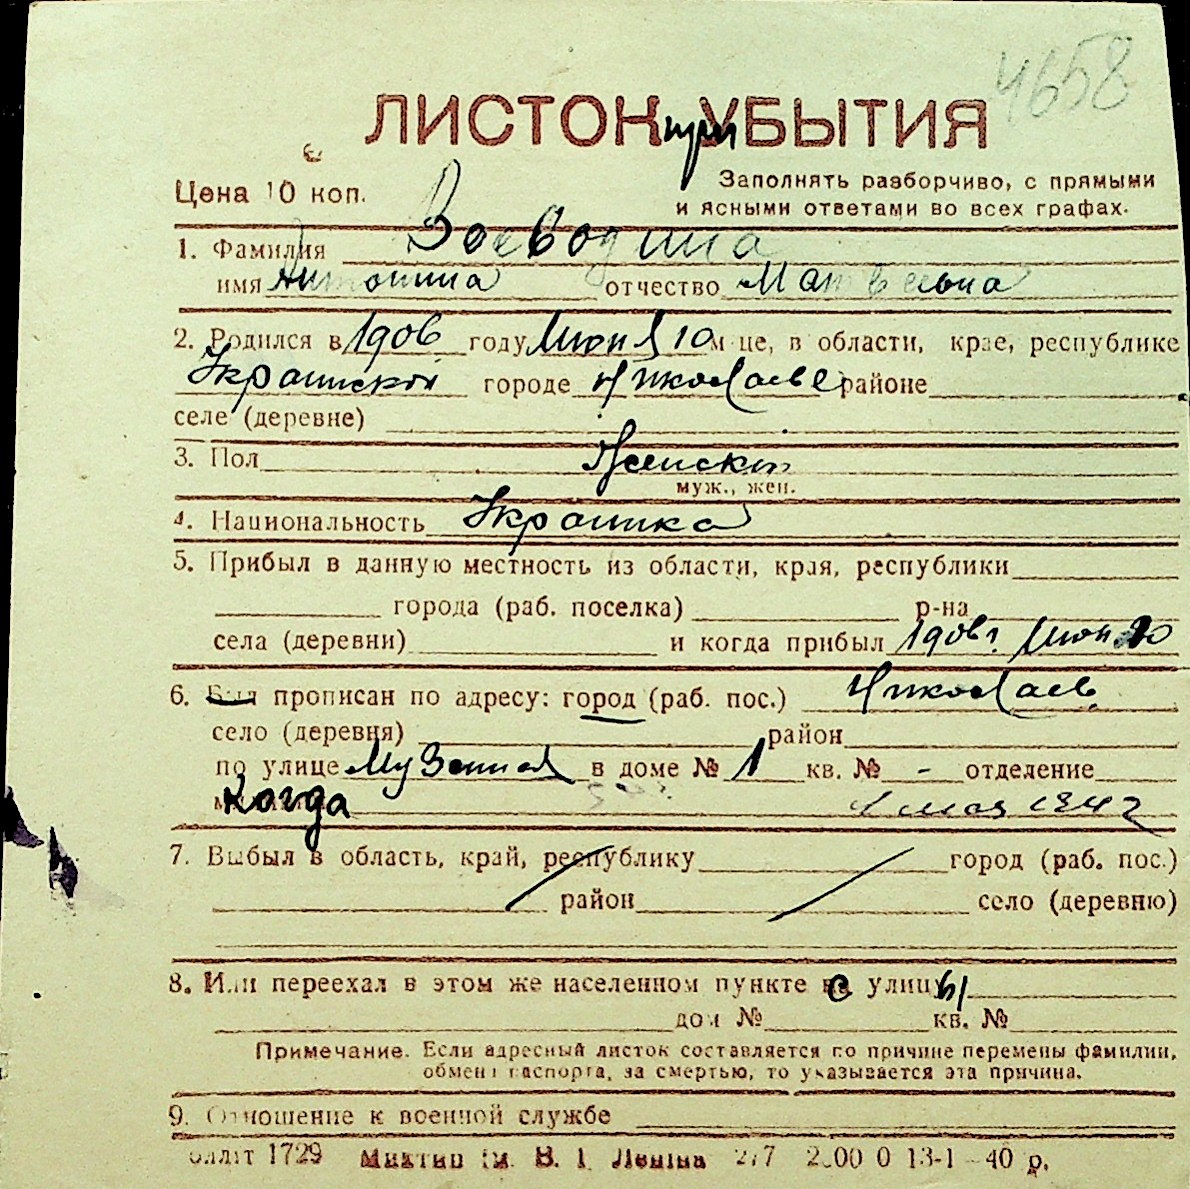 4658
ЛИСТОК при УБЫТИЯ
Цена 10 коп.
Заполнять разборчиво, с прямыми
и ясными ответами во всех графах.
1. Фамилия Воеводина
имя Антонина отчество Матвеевна
2. Родился в 1906 году Июня 10 м-це, в области, крае, республике
Украинской городе Николаеве районе
селе (деревне)
3. Пол Женский
муж., жен.
4. Национальность Украинка
5. Прибыл в данную местность из области, края, республики
города (раб. поселка) р-на
села (деревни) и когда прибыл 1906 г. Июн. 10
6. Был прописан по адресу: город (раб. пос.) Николаев
село (деревня) район
по улице Музейная в доме № 1 кв. № - отделение
Когда 1 мая 1942
7. Выбыл в область, край, республику город (раб. пос.)
район село (деревню)
8. Или переехал в этом же населенном пункте с улицы
дом № кв. №
Примечание. Если адресный листок составляется по причине перемены фамилии,
обмена паспорта, за смертью, то указывается эта причина.
9. Отношение к военной службе
1729 им. В. І. Леніна 2/7 13-1-40 р.